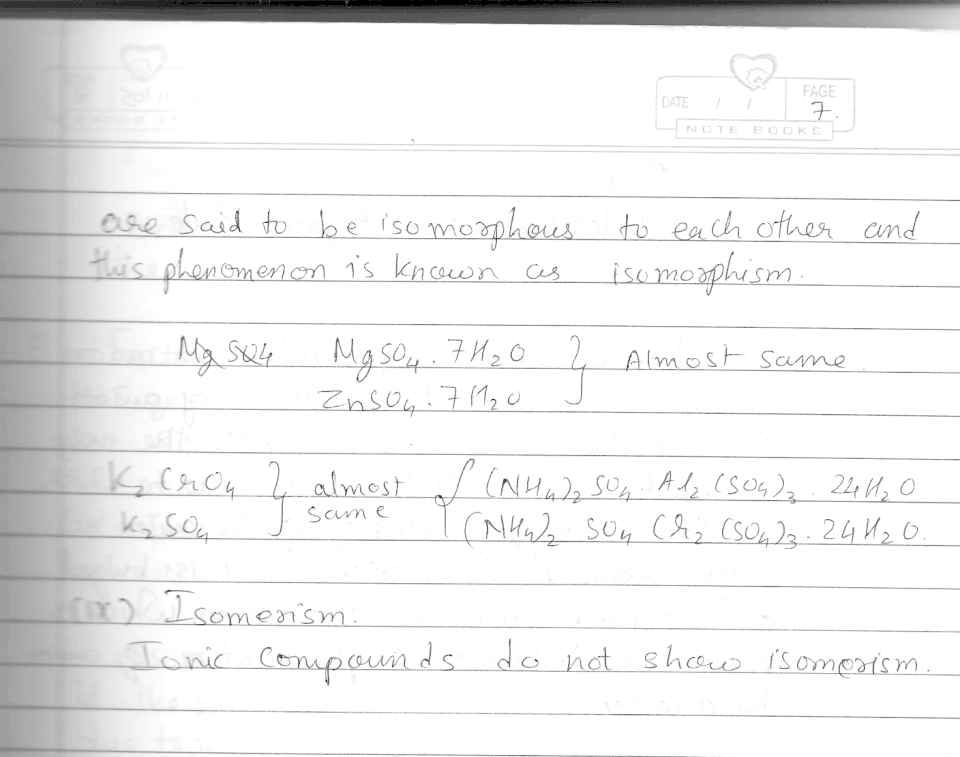 DATE / / PAGE
7.
NOTE BOOKS
are said to be isomorphous to each other and
this phenomenon is known as isomorphism.
Mg SO4 MgSO₄ . 7H₂O } Almost same
ZnSO₄ . 7H₂O
K₂CrO₄ } almost { (NH₄)₂ SO₄ . Al₂ (SO₄)₃ . 24H₂O
K₂SO₄ same (NH₄)₂ SO₄ Cr₂ (SO₄)₃ . 24H₂O.
(ix) Isomerism.
Ionic compounds do not show isomerism.